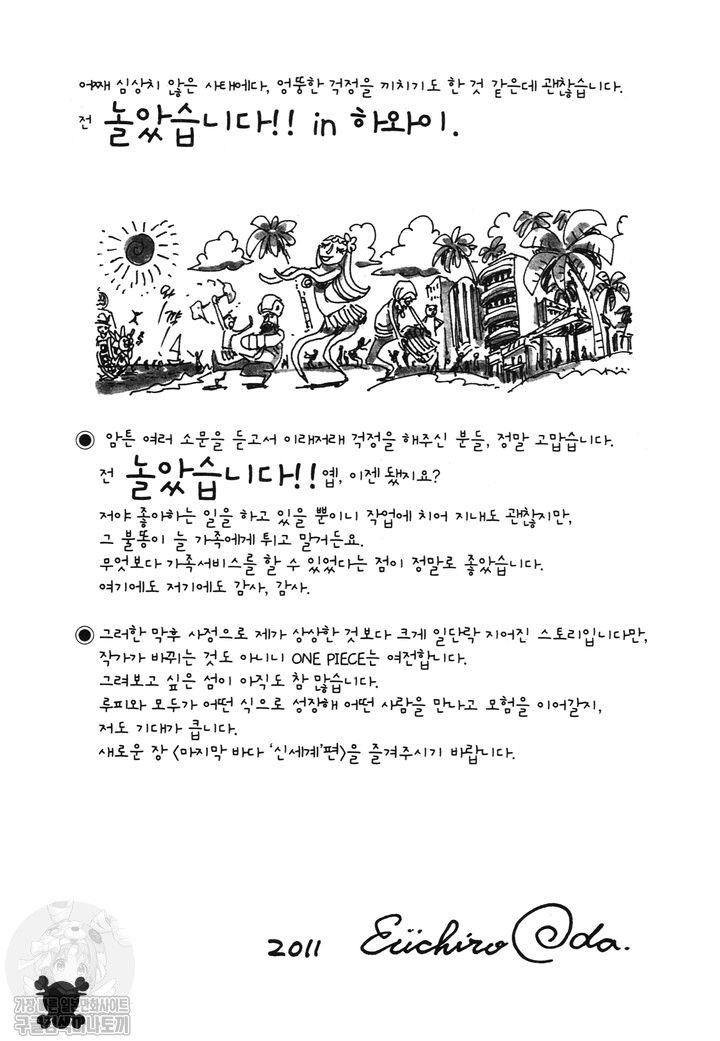 어째 심상치 않은 사태에다, 엉뚱한 걱정을 끼치기도 한 것 같은데 괜찮습니다.
전 놀았습니다!! in 하와이.
◉ 암튼 여러 소문을 듣고서 이래저래 걱정을 해주신 분들, 정말 고맙습니다.
전 놀았습니다!! 옙, 이젠 됐지요?
저야 좋아하는 일을 하고 있을 뿐이니 작업에 치어 지내도 괜찮지만,
그 불똥이 늘 가족에게 튀고 말거든요.
무엇보다 가족서비스를 할 수 있었다는 점이 정말로 좋았습니다.
여기에도 저기에도 감사, 감사.
◉ 그러한 막후 사정으로 제가 상상한 것보다 크게 일단락 지어진 스토리입니다만,
작가가 바뀌는 것도 아니니 ONE PIECE는 여전합니다.
그려보고 싶은 섬이 아직도 참 많습니다.
루피와 모두가 어떤 식으로 성장해 어떤 사람을 만나고 모험을 이어갈지,
저도 기대가 큽니다.
새로운 장 〈마지막 바다 '신세계'편〉을 즐겨주시기 바랍니다.
2011 Eiichiro Oda.